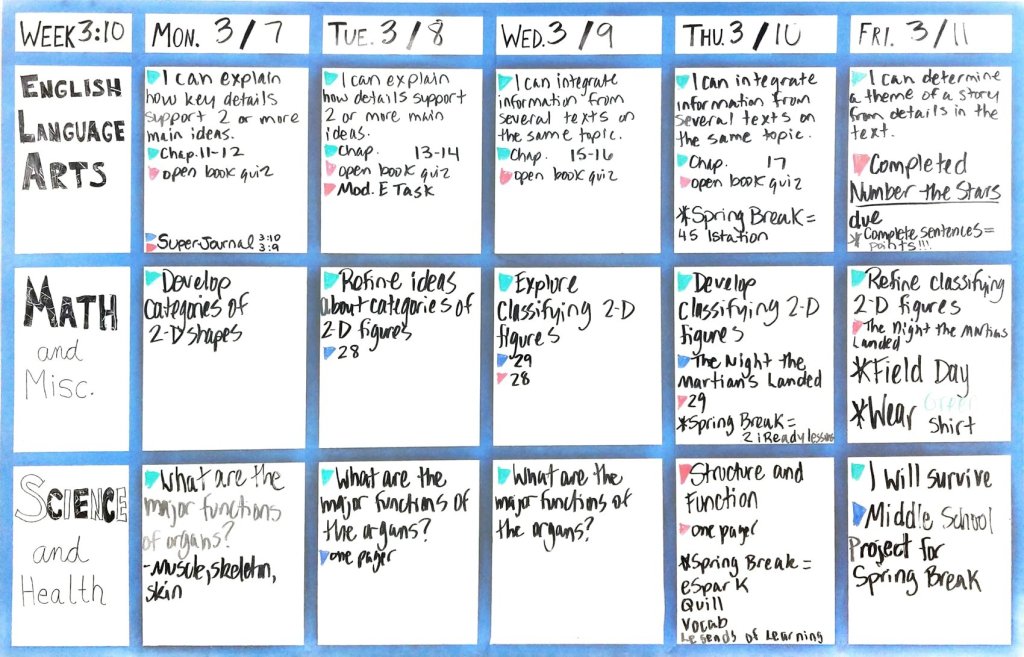 WEEK 3:10
MON. 3/7
TUE. 3/8
WED. 3/9
THU. 3/10
FRI. 3/11
ENGLISH
LANGUAGE
ARTS
I can explain
how key details
support 2 or more
main ideas.
Chap. 11-12
open book quiz
Super Journal 3:10
3:9
I can explain
how details support
2 or more main
ideas.
Chap. 13-14
open book quiz
Mod. E Task
I can integrate
information from
several texts on
the same topic.
Chp. 15-16
open book quiz
I can integrate
information from
several texts on
the same topic.
Chap. 17
open book quiz
*Spring Break =
45 Istation
I can determine
a theme of a story
from details in the
text.
Completed
Number the Stars
due
*Complete sentences=
points!!!
MATH
and
Misc.
Develop
categories of
2-D shapes
Refine ideas
about categories of
2-D figures
28
Explore
classifying 2-D
figures
29
28
Develop
classifying 2-D
figures
The Night the
Martians Landed
29
*Spring Break =
2 iReady lessons
Refine classifying
2-D figures
The Night the Martians
Landed
*Field Day
*Wear Green
shirt
SCIENCE
and
Health
What are the
major functions
of organs?
-Muscle, skeleton,
skin
What are the
major functions of
the organs?
one pager
What are the
major functions of
the organs?
Structure and
Function
one pager
*Spring Break =
eSpark
Quill
Vocab
Legends of Learning
I will survive
Middle School
Project for
Spring Break